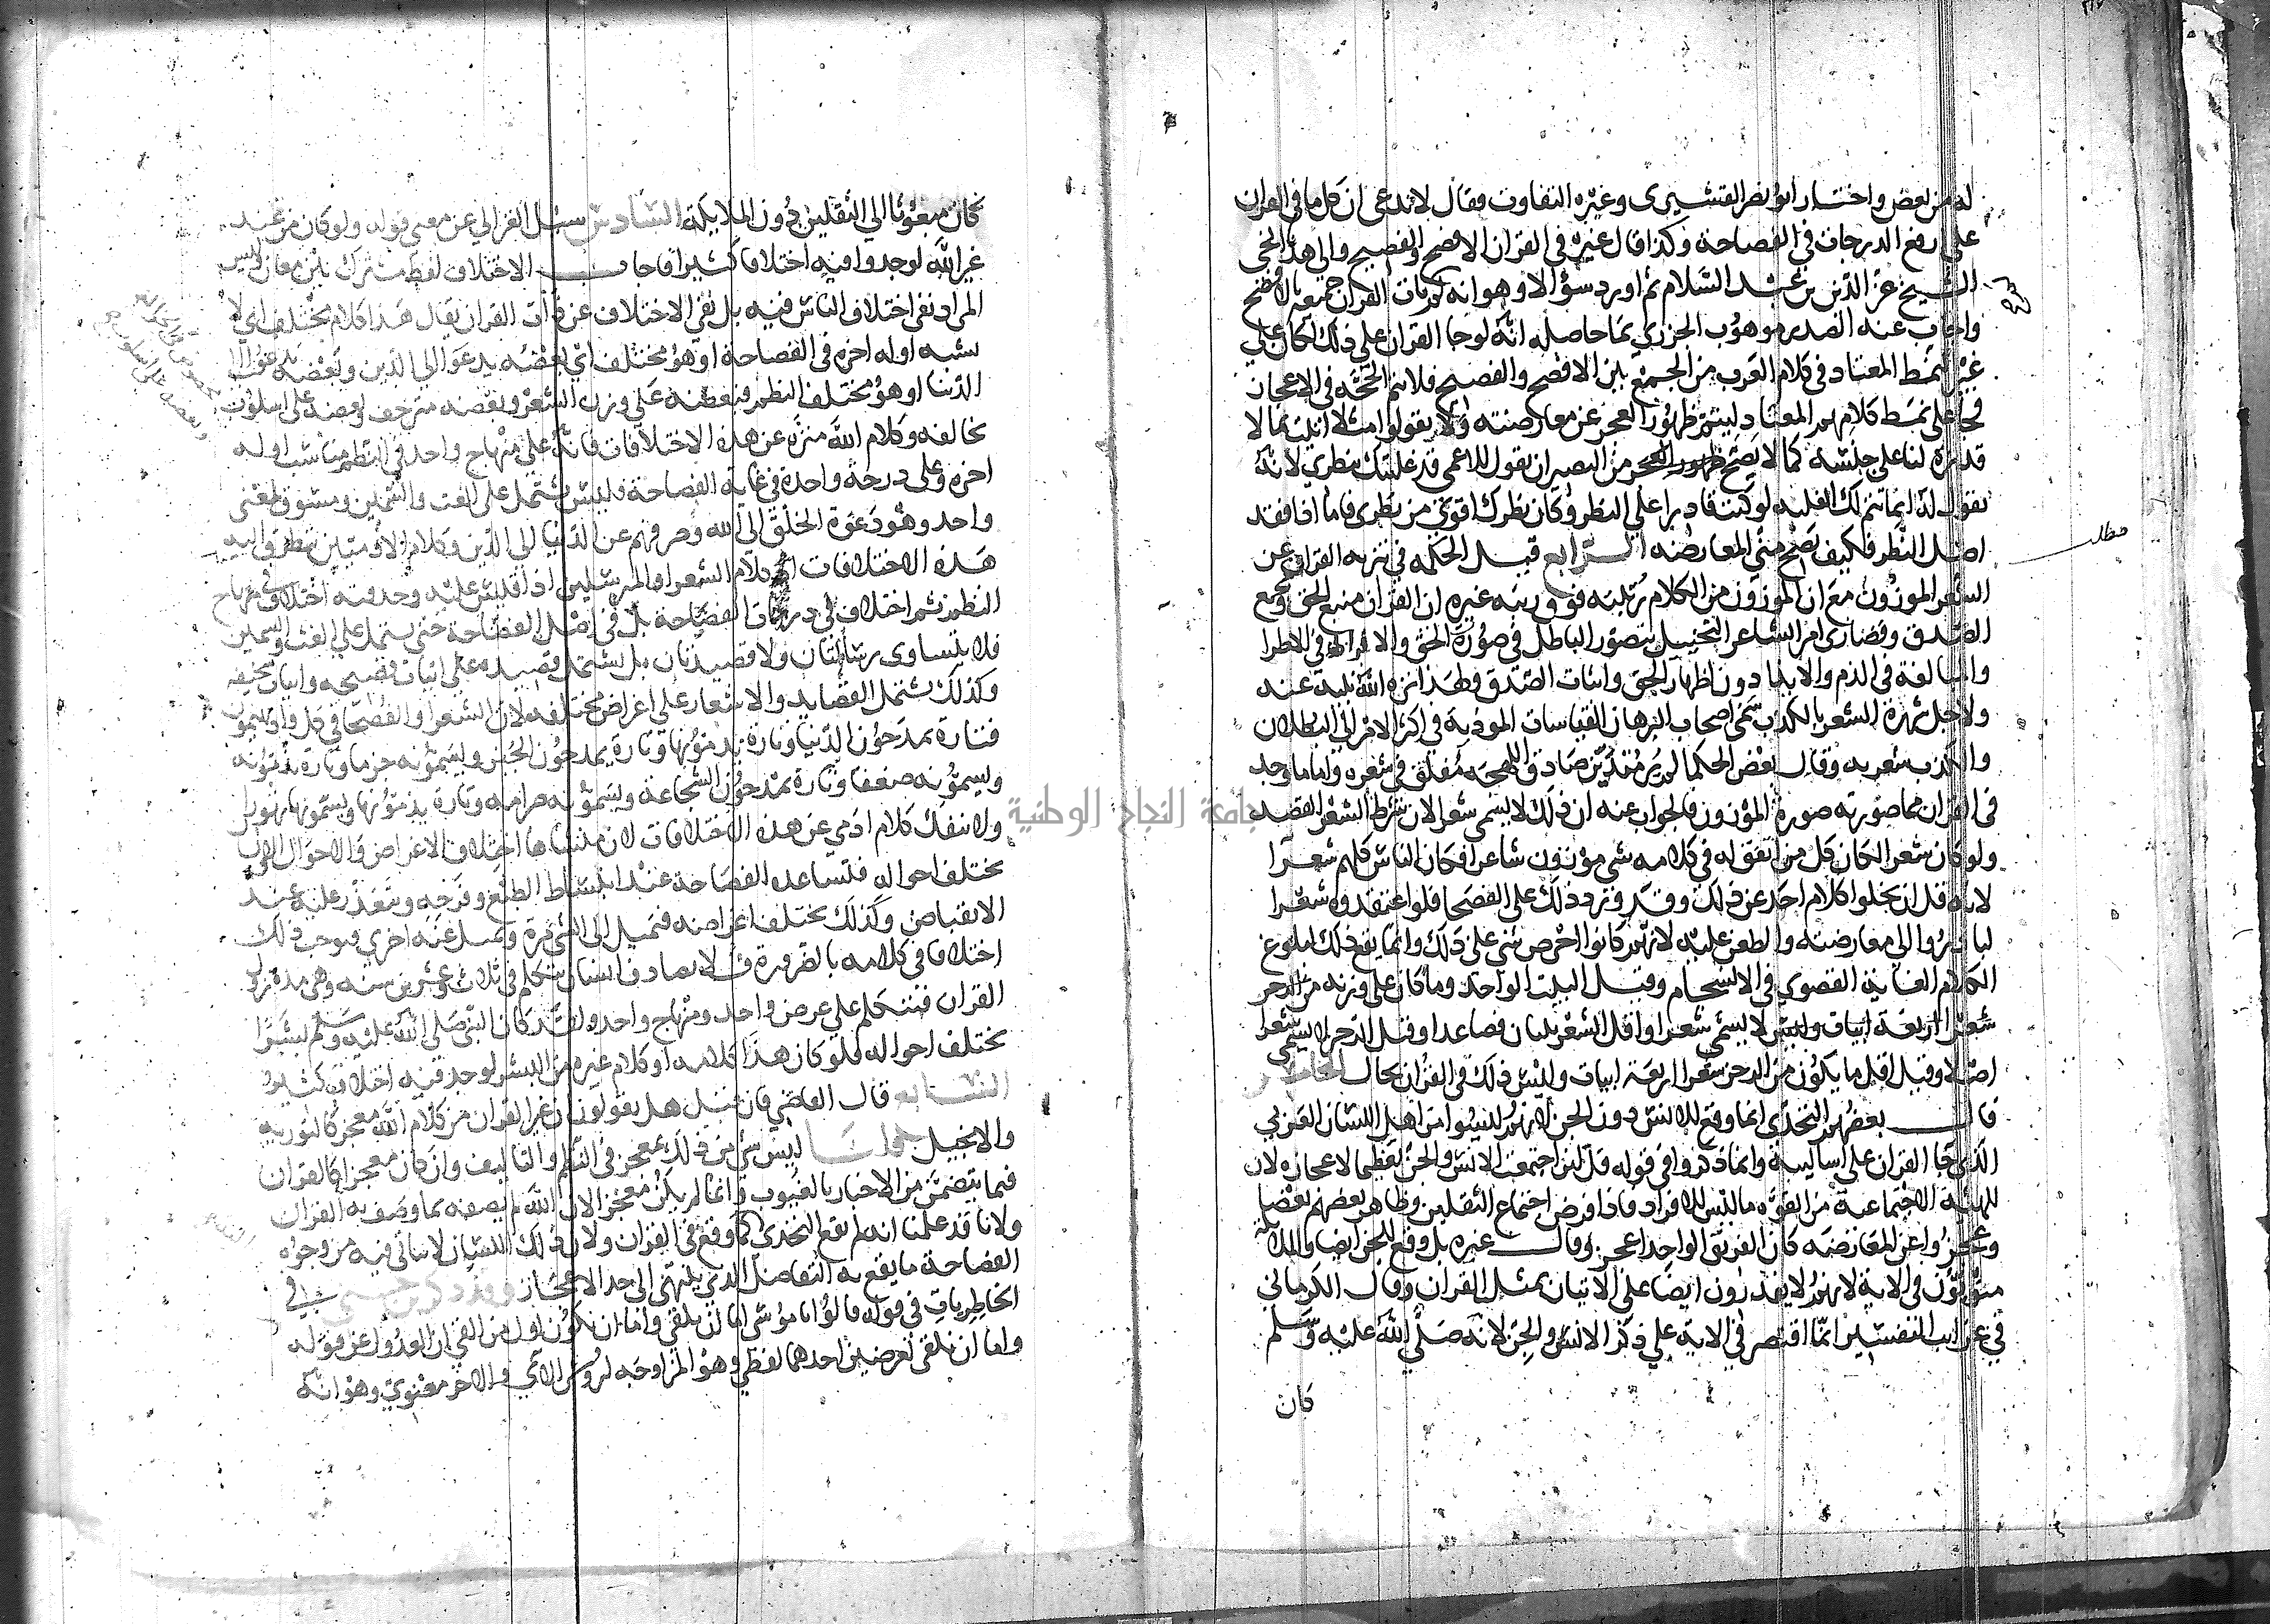 له من بعض واختار ابو نصر القشيرى وغيره التفاوت فقال لا ندعى ان كل ما فى القران
على رفع الدرجات فى الفصاحة وكذا قال غيره فى القران الافصح والفصيح والى هذا نحى
الشيخ عز الدين بن عبد السلام ثم اورد سؤالا وهو انه لم يات القران جميعه بالافصح
واجاب عنه الصدر موهوب الجزري بما حاصله انه لو جا القران على ذلك لكان على
غير النمط المعتاد فى كلام العرب من الجمع بين الافصح والفصيح فلا تتم الحجة فى الاعجاز
فجا على نمط كلامهم المعتاد ليتم ظهور العجز عن معارضته ولا يقولوا مثلا اتيت بما لا
قدرة لنا على جنسه كما لا يصح من البصير ان يقول للاعمى قد غلبتك بنظري لانه
يقول له انما تتم لك الغلبة لو كنت قادرا على النظر وكان نظرك اقوى من نظرى فاما اذا فقد
اصل النظر فكيف تصح منى المعارضه الرابع قيل الحكمة فى تنزيه القران عن
الشعر الموزون مع ان الموزون من الكلام رتبته فوق رتبة غيره ان القران منبع الحق ومجمع
الصدق وقصارى امر الشاعر التخييل بتصور الباطل فى صورة الحق والافراط فى الاطرا
والمبالغة فى الذم والايذا دون اظهار الحق واثبات الصدق ولهذا نزه الله نبيه عنه
ولاجل شهرة الشعر بالكذب سمى اصحاب البرهان القياسات المودية فى اكثر الامر الى البطلان
والكذب شعريه وقال بعض الحكما لم ير متدين صادق اللهجه مفلق فى شعره واما ما وجد
فى القران مما صورته صورة الموزون فالجواب عنه ان ذلك لا يسمى شعرا لان شرط الشعر القصد
ولو كان شعرا لكان كل من اتفق له فى كلامه شى موزون شاعرا فكان الناس كلهم شعرا
لانه قل ان يخلوا كلام احد عن ذلك وقد ورد ذلك على الفصحا فلو اعتقدوه شعرا
لبادروا الى معارضته والطعن عليه لانهم كانوا احرص شى على ذلك وانما يقع ذلك لبلوغ
الكلام الغاية القصوي فى الانسجام وقيل البيت الواحد وما كان على وزنه من الرجز
شعرا اربعة ابيات وليس لا يسمى شعرا واقل الشعر بيتان فصاعدا وقيل الرجز لا يسمى شعرا
اصلا وقيل اقل ما يكون من الرجز شعرا اربعة ابيات وليس ذلك فى القران بحال الخامس
قال بعضهم التحدى انما وقع للانس دون الجن لانهم ليسوا من اهل اللسان العربي
الذى جا القران على اساليبه وانما ذكروا فى قوله قل لين اجتمعت الانس والجن تعظيما لاعجازه لان
للهيئة الاجتماعية من القوة ما ليس للافراد فاذا فرض اجتماع الثقلين وظاهر بعضهم بعضا
وعجزوا عن المعارضه كان الفريق الواحد اعجز وقال غيره بل وقع للجن ايضا والملايكة
منويون فى الاية لانهم لا يقدرون ايضا على الاتيان بمثل القران وقال الكرماني
في غرايب التفسير انما اقتصر فى الاية على ذكر الانس والجن لانه صلى الله عليه وسلم
كان
مطلب
كان مبعوثا الي الثقلين دون الملايكة السادس سئل الغزالي عن معنى قوله ولو كان من عند
غير الله لوجدوا فيه اختلافا كثيرا فاجاب الاختلاف لفظ مشترك بين معان وليس
المراد نفى اختلاف الناس فيه بل نفى الاختلاف عن ذات القران يقال هذا كلام مختلف اي لا
يشبه اوله اخره فى الفصاحة او هو مختلف اي بعضه يدعوا الى الدين وبعضه يدعوا الى
الدنيا او هو مختلف النظم فبعضه على وزن الشعر وبعضه منزحف وبعضه على اسلوب
يخالفه وكلام الله منزه عن هذه الاختلافات فانه على منهاج واحد فى النظم مناسب اوله
اخره وعلى درجة واحدة فى غاية الفصاحة فليس يشتمل على الغث والثمين ومسوق لمعنى
واحد وهو دعوة الخلق الى الله وصرفهم عن الدنيا الى الدين وكلام الادميين يتطرق اليه
هذه الاختلافات اذ كلام الشعرا والمرسلين اذا قيس عليه وجد فيه اختلاف فى منهاج
النظم ثم اختلاف فى درجات الفصاحة بل فى اصل الفصاحة حتى يشتمل على الغث والسمين
فلا يتساوى رسالتان ولا قصيدتان بل يشتمل قصيدة على ابيات فصيحه وابيات سخيفه
وكذلك تشتمل القصايد والاشعار على اغراض مختلفه لان الشعرا والفصحا فى كل واد يهيمون
فتارة يمدحون الدنيا وتارة يذمونها وتارة يمدحون الجبن ويسمونه حزما وتارة يذمونه
ويسمونه ضعفا وتارة يمدحون الشجاعة ويسمونها صرامه وتارة يذمونها ويسمونها تهورا
ولا ينفك كلام ادمي عن هذه الاختلافات لان منشاها اختلاف الاغراض والاحوال والانسان
يختلف احواله فتساعده الفصاحة عند انبساط الطبع وفرحه وتتعذر عليه عند
الانقباض وكذلك يختلف اغراضه فيميل الى الشى مرة ويميل عنه اخري فيوجب ذلك
اختلافا فى كلامه بالضرورة فلا يصادف انسان يتكلم فى ثلاث وعشرين سنه وهى مدة نزول
القران فيتكلم على غرض واحد ومنهاج واحد ولقد كان النبى صلى الله عليه وسلم بشرا
يختلف احواله فلو كان هذا كلامه او كلام غيره من البشر لوجد فيه اختلاف كثير
السابع قال القاضي فان قيل هل يقولون ان غير القران من كلام الله معجز كالتوريه
والانجيل قلنا ليس شى من ذلك بمعجز فى النظم والتاليف وان كان معجزا كالقران
فيما يتضمن من الاخبار بالغيوب وانما لم يكن معجزا لان الله لم يصفه بما وصف به القران
ولانا قد علمنا انه لم يقع التحدي كما وقع فى القران ولان ذلك اللسان لا يتاتى فيه من وجوه
الفصاحة ما يقع به التفاصل الذي ينتهى الى حد الاعجاز وقد ذكر ابن جنى فى
الخاطريات فى قوله قالوا يا موسى اما ان تلقى واما ان نكون اول من القى ان العدول عن قوله
واما ان نلقى لغرضين احدهما لفظي وهو المزاوجه لروس الاي والاخر معنوي وهو انه
جامعة النجاح الوطنية